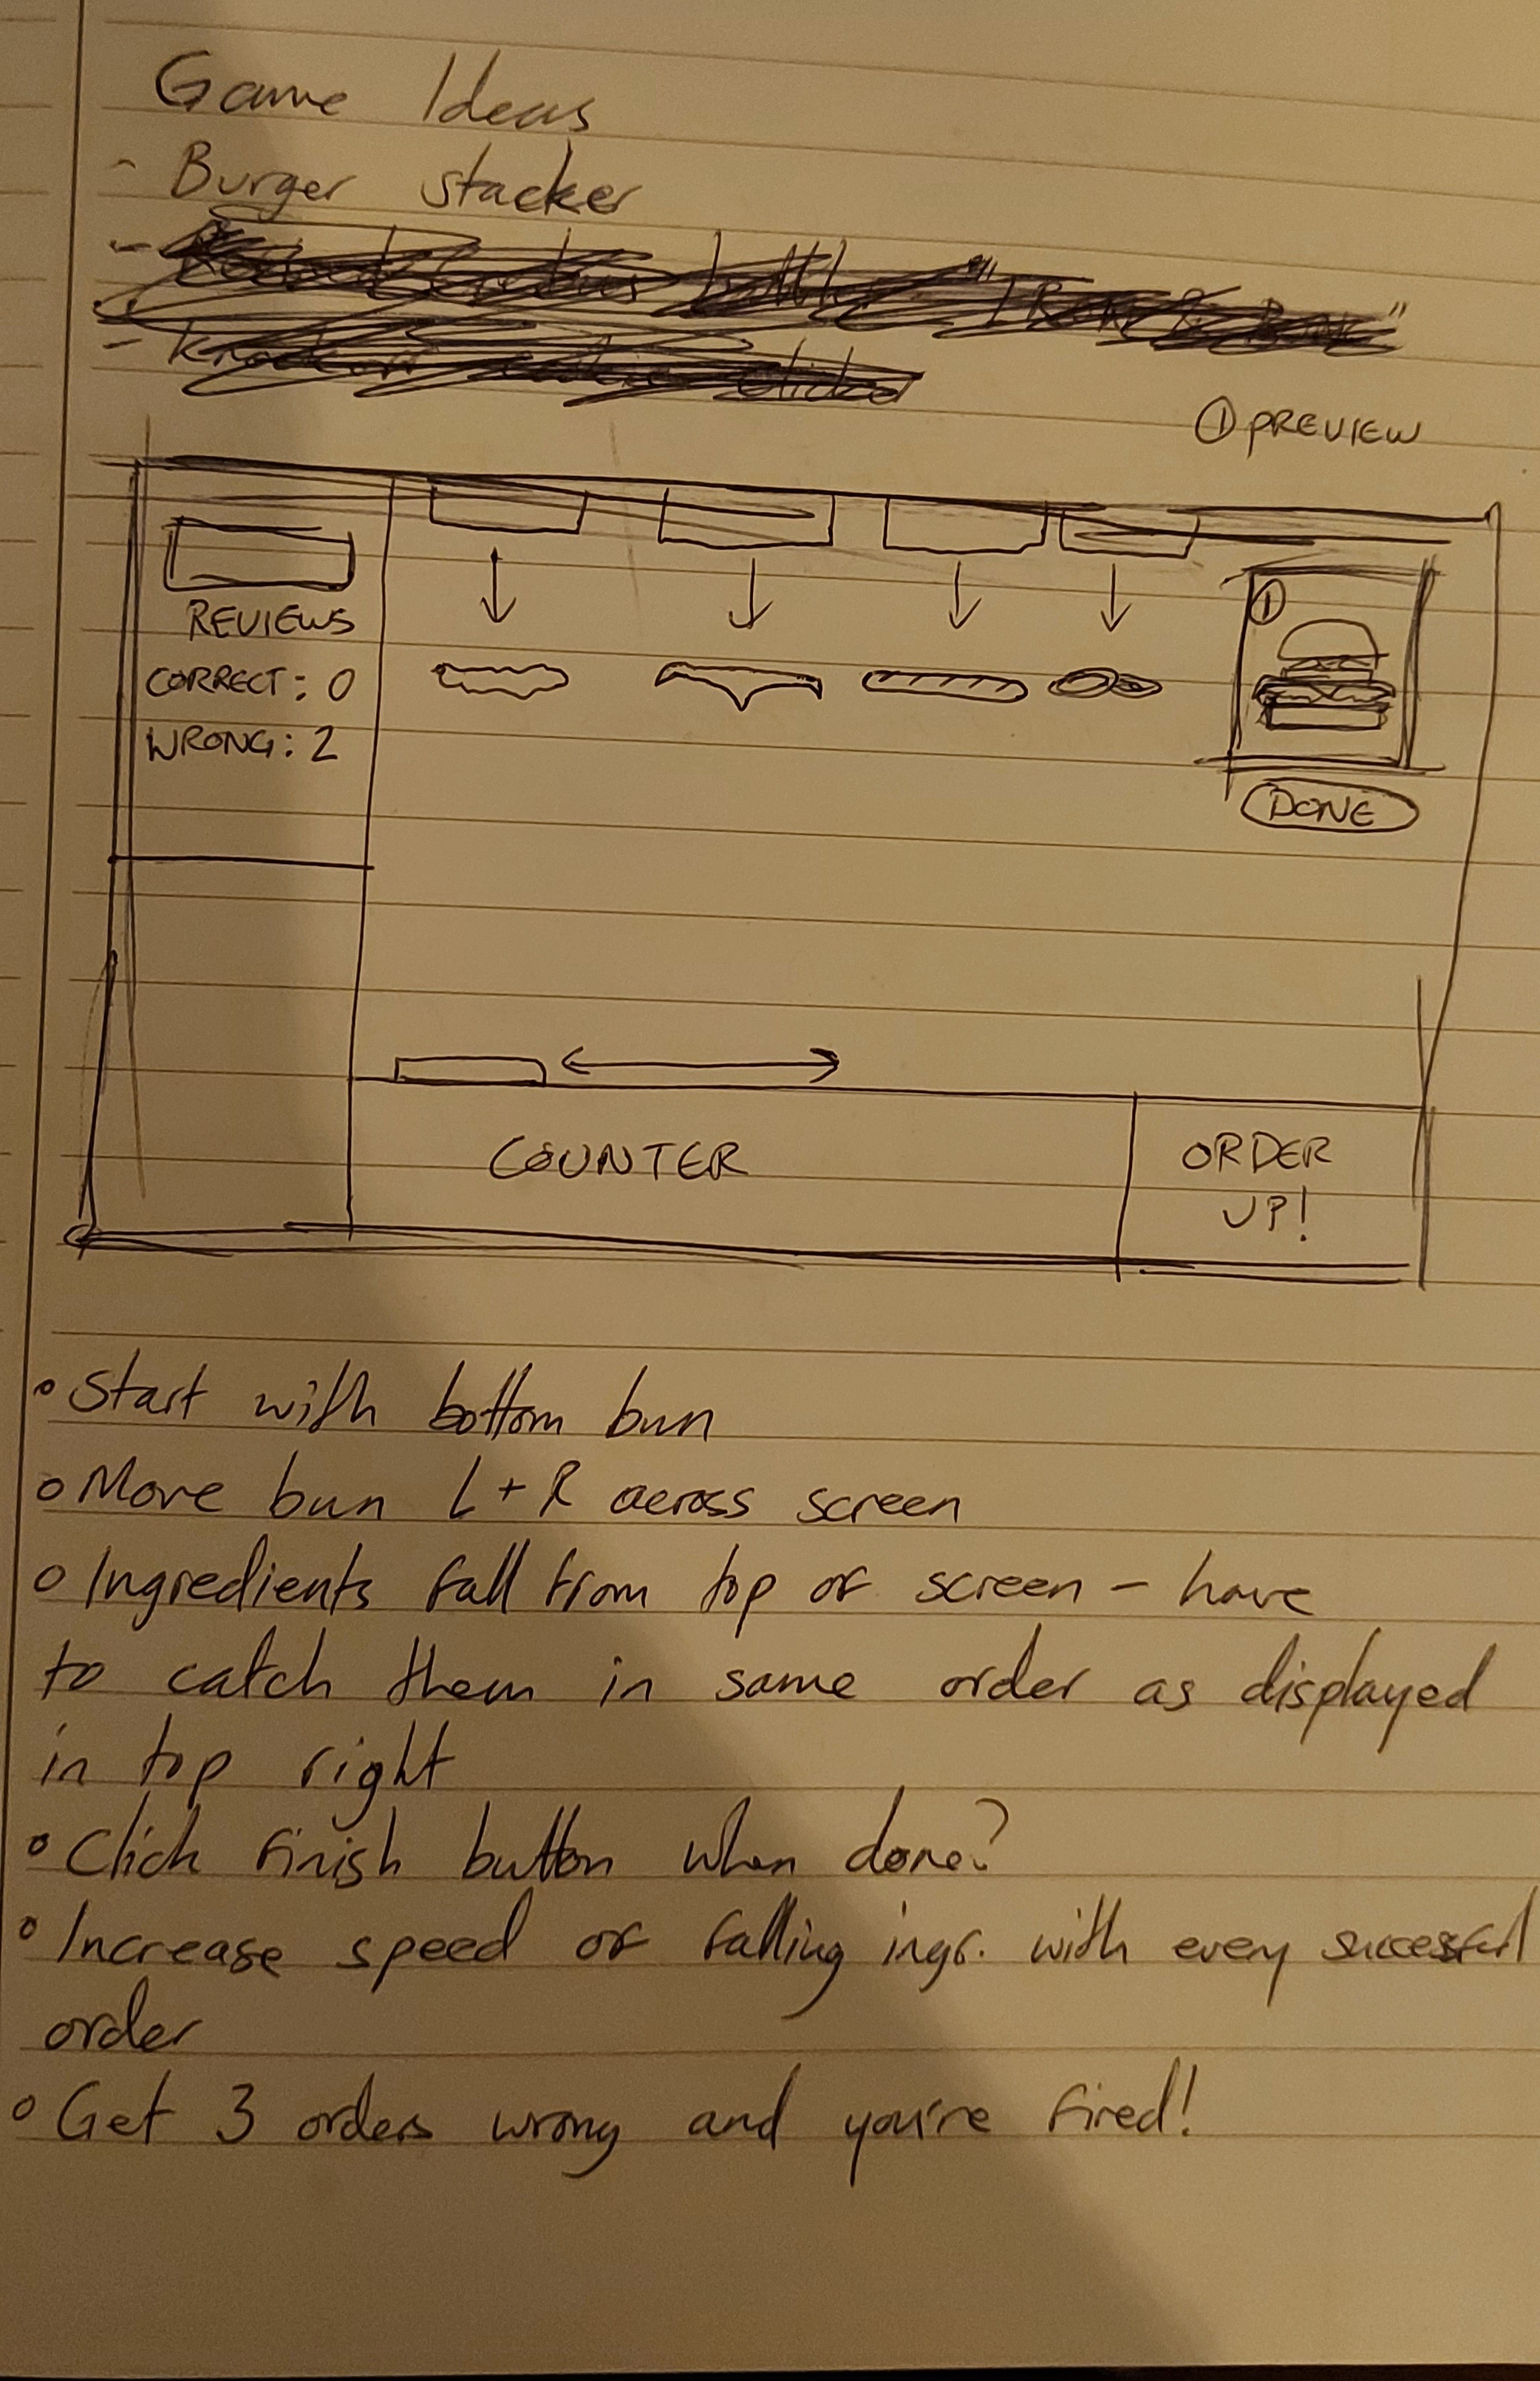 Game Ideas
- Burger stacker
-
-
① PREVIEW
REVIEWS
CORRECT: 0
WRONG: 2
①
DONE
COUNTER
ORDER
UP!
• Start with bottom bun
• Move bun L + R across screen
• Ingredients fall from top of screen - have
to catch them in same order as displayed
in top right
• Click finish button when done?
• Increase speed of falling ingr. with every successful
order
• Get 3 orders wrong and you're fired!